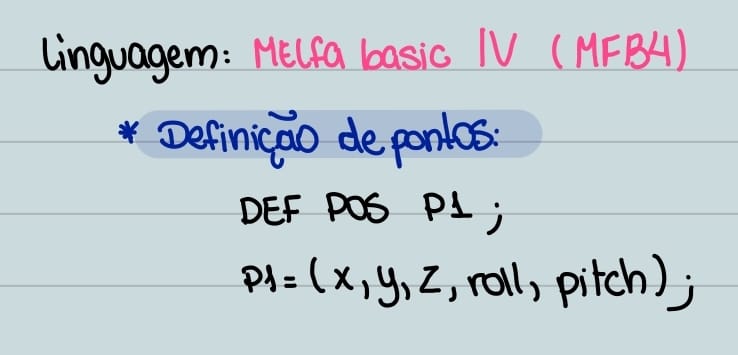 Linguagem: MELFA basic IV (MFB4)
* Definição de pontos:
DEF POS P1 ;
P1 = (x, y, z, roll, pitch) ;